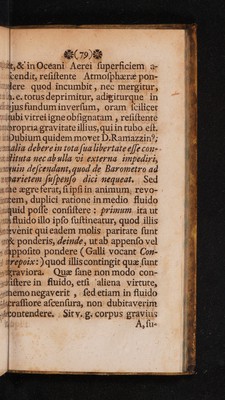 (79)
& in Oceani Aerei superficiem a-
scendit, resistente Atmosphæræ pon-
dere quod incumbit, nec mergitur,
i. e. totus deprimitur, adigiturque in
ejus fundum inversum, oram scilicet
tubi vitrei igne obsignatam, resistente
propria gravitate illius, qui in tubo est.
Dubium quidem movet D. Ramazzin9;
talia debere in tota sua libertate esse con-
stituta nec ab ulla vi externa impediri,
quin descendant, quod de Barometro ad
parietem suspenso dici nequeat. Sed
ne ægre ferat, si ipsi in animum revo-
cem, duplici ratione in medio fluido
quid posse consistere: primum ita ut
a fluido illo ipso sustineatur, quod illis
evenit qui eadem molis paritate sunt
& ponderis, deinde, ut ab appenso vel
apposito pondere (Galli vocant Con-
trepoix:) quod illis contingit quæ sunt
graviora. Quæ sane non modo con-
sistere in fluido, etsi aliena virtute,
nemo negaverit, sed etiam in fluido
crassiore ascensura, non dubitaverim
contendere. Sit v. g. corpus gravius
A, su-